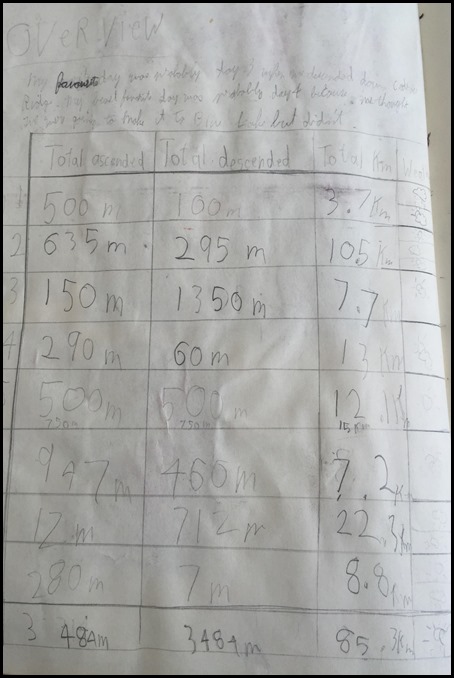 OVERVIEW
My favourite day was probably day 3 when we descended down
Ridge. My least favourite day was probably day 5 because we thought
we were going to make it to but didn't.
Total ascended Total descended Total Km
1 500 m 100 m 3.7 Km
2 635 m 295 m 10.5 Km
3 150 m 1350 m 7.7 K
4 290 m 60 m 13 Km
500 m 500 m 12.1 K
750m 750m 15 Km
947 m 460 m 7.2 K
12 m 712 m 22.3 Km
280 m 7 m 8.8 Km
3 484 m 3484 m 85.3 Km